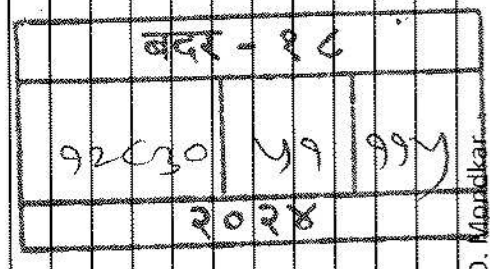 बदर - १८
१२८३० ५१ ११५
२०२४
D. Mondkar